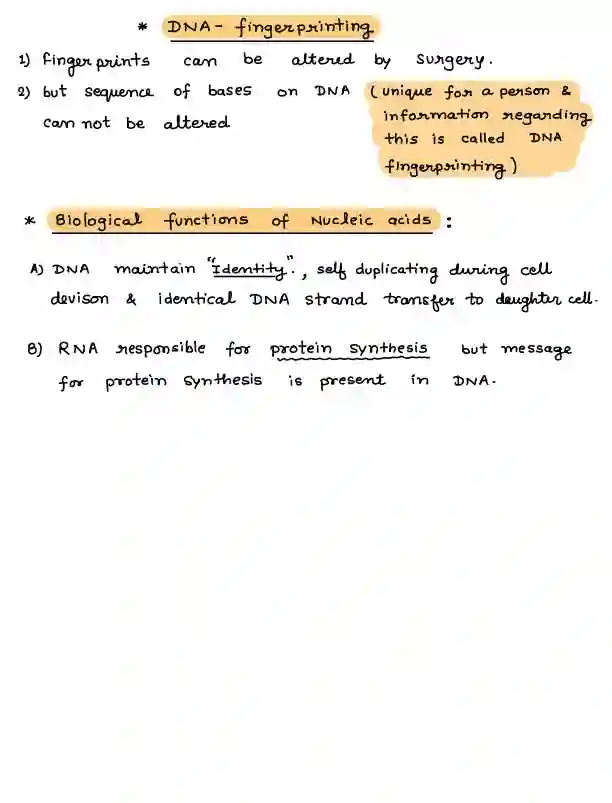 * DNA - fingerprinting
1) finger prints can be altered by surgery.
2) but sequence of bases on DNA (unique for a person &
can not be altered information regarding
this is called DNA
fingerprinting)
* Biological functions of Nucleic acids :
A) DNA maintain "Identity"., self duplicating during cell
devison & identical DNA strand transfer to daughter cell.
B) RNA responsible for protein synthesis but message
for protein synthesis is present in DNA.